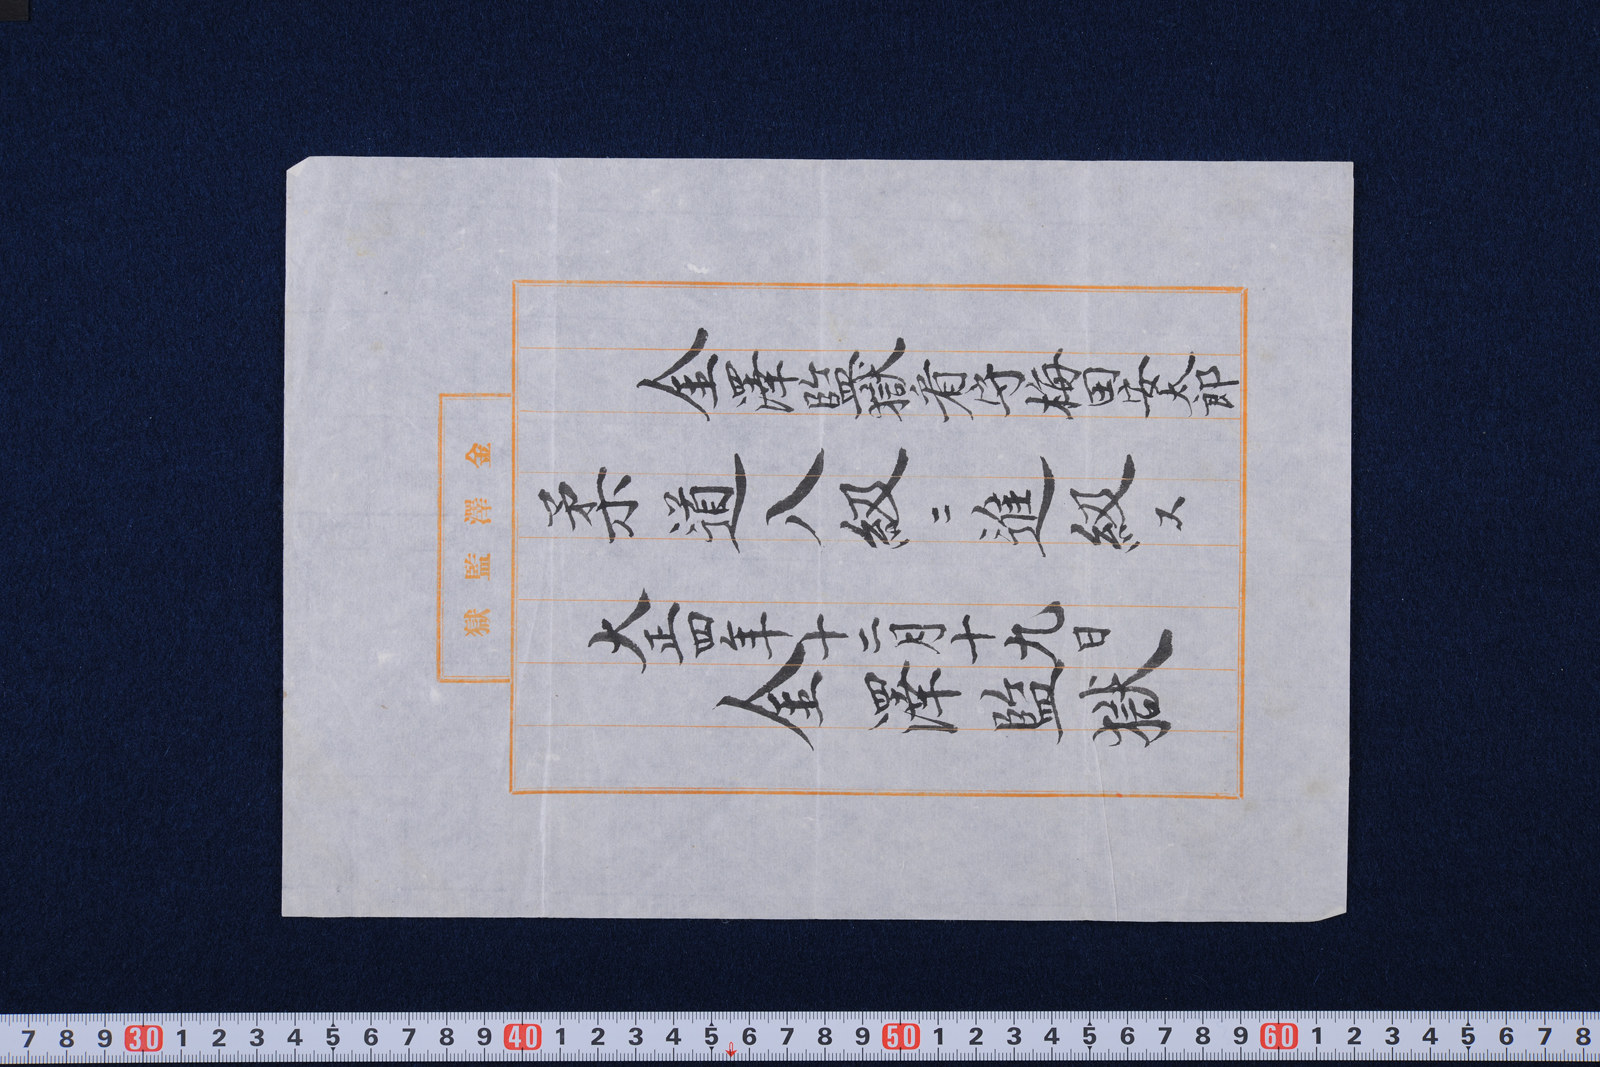 金澤監獄看守梅田安太郎
柔道八級ニ進級ス
大正四年十二月十九日
金澤監獄
金澤監獄
7 8 9 30 1 2 3 4 5 6 7 8 9 40 1 2 3 4 5 6 7 8 9 50 1 2 3 4 5 6 7 8 9 60 1 2 3 4 5 6 7 8